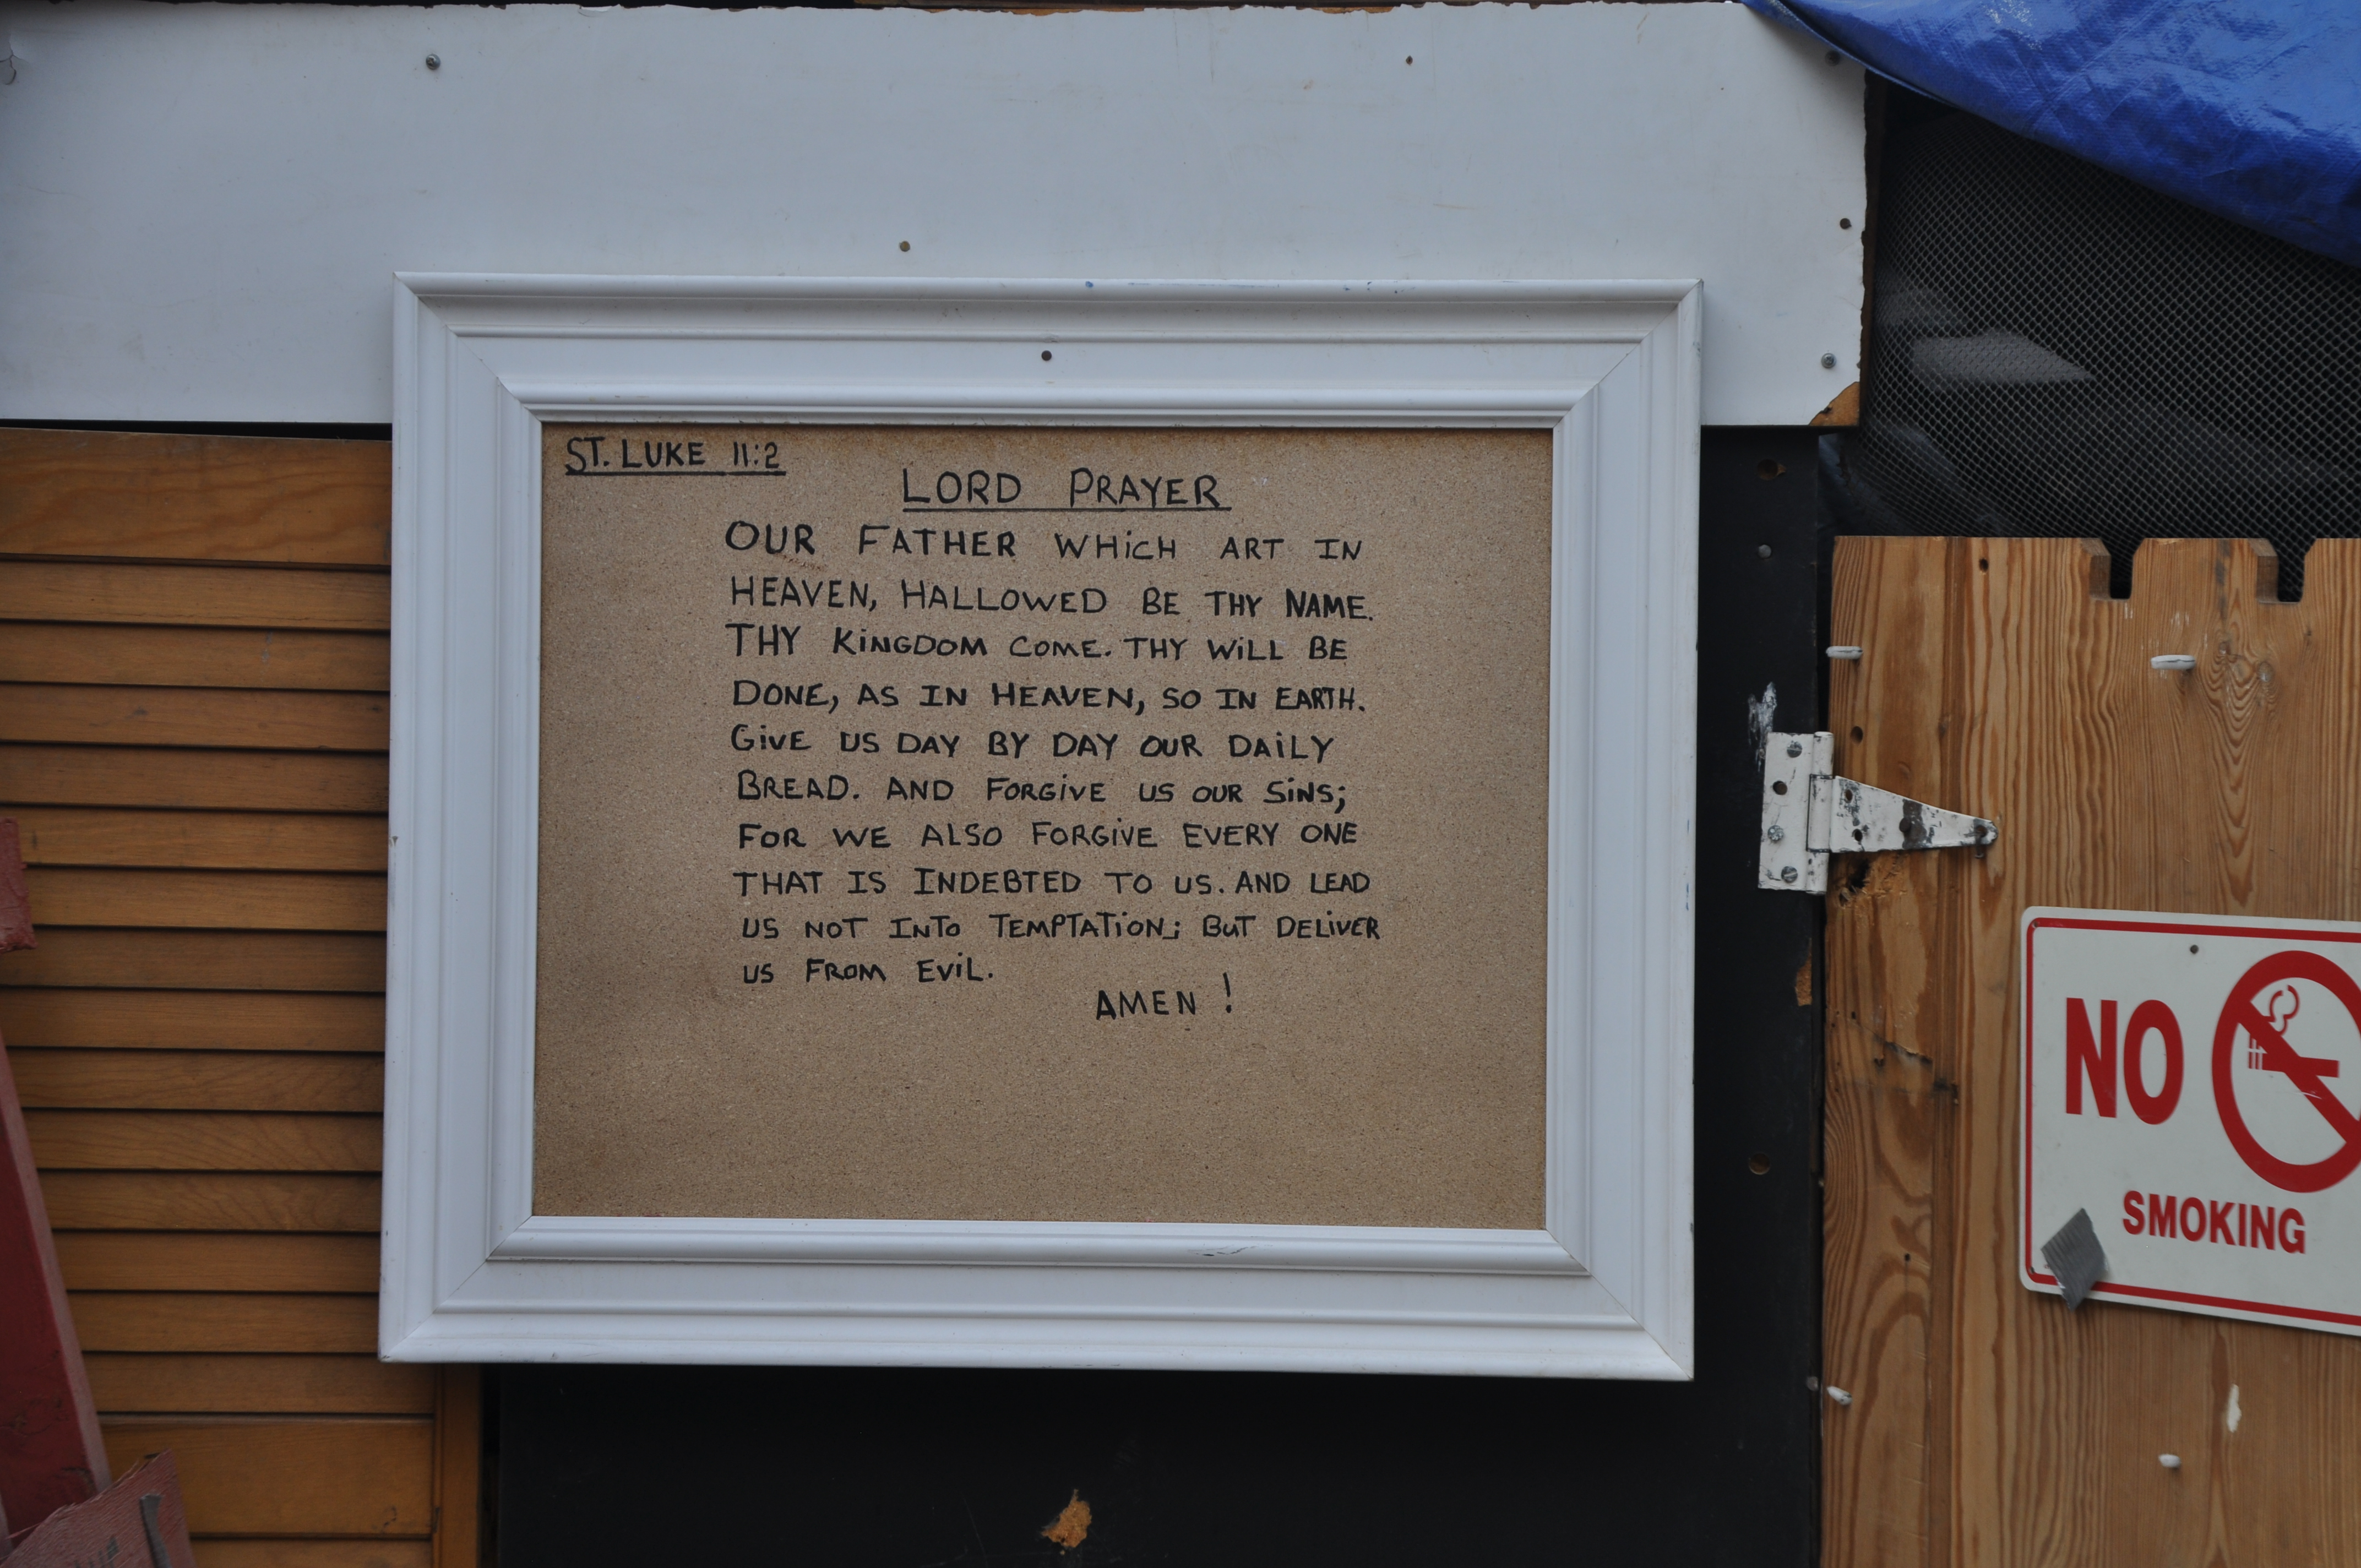 ST. LUKE 11:2
LORD PRAYER
OUR FATHER WHiCH ART IN
HEAVEN, HALLOWED BE THY NAME.
THY KiNGDOM COME. THY WiLL BE
DONE, AS IN HEAVEN, SO IN EARTH.
GiVE US DAY BY DAY OUR DAiLY
BREAD. AND FORGiVE US OUR SiNS;
FOR WE ALSO FORGiVE EVERY ONE
THAT IS INDEBTED TO US. AND LEAD
US NOT INTO TEMPTATiON; BUT DELiVER
US FROM EViL.
AMEN !
NO
SMOKING